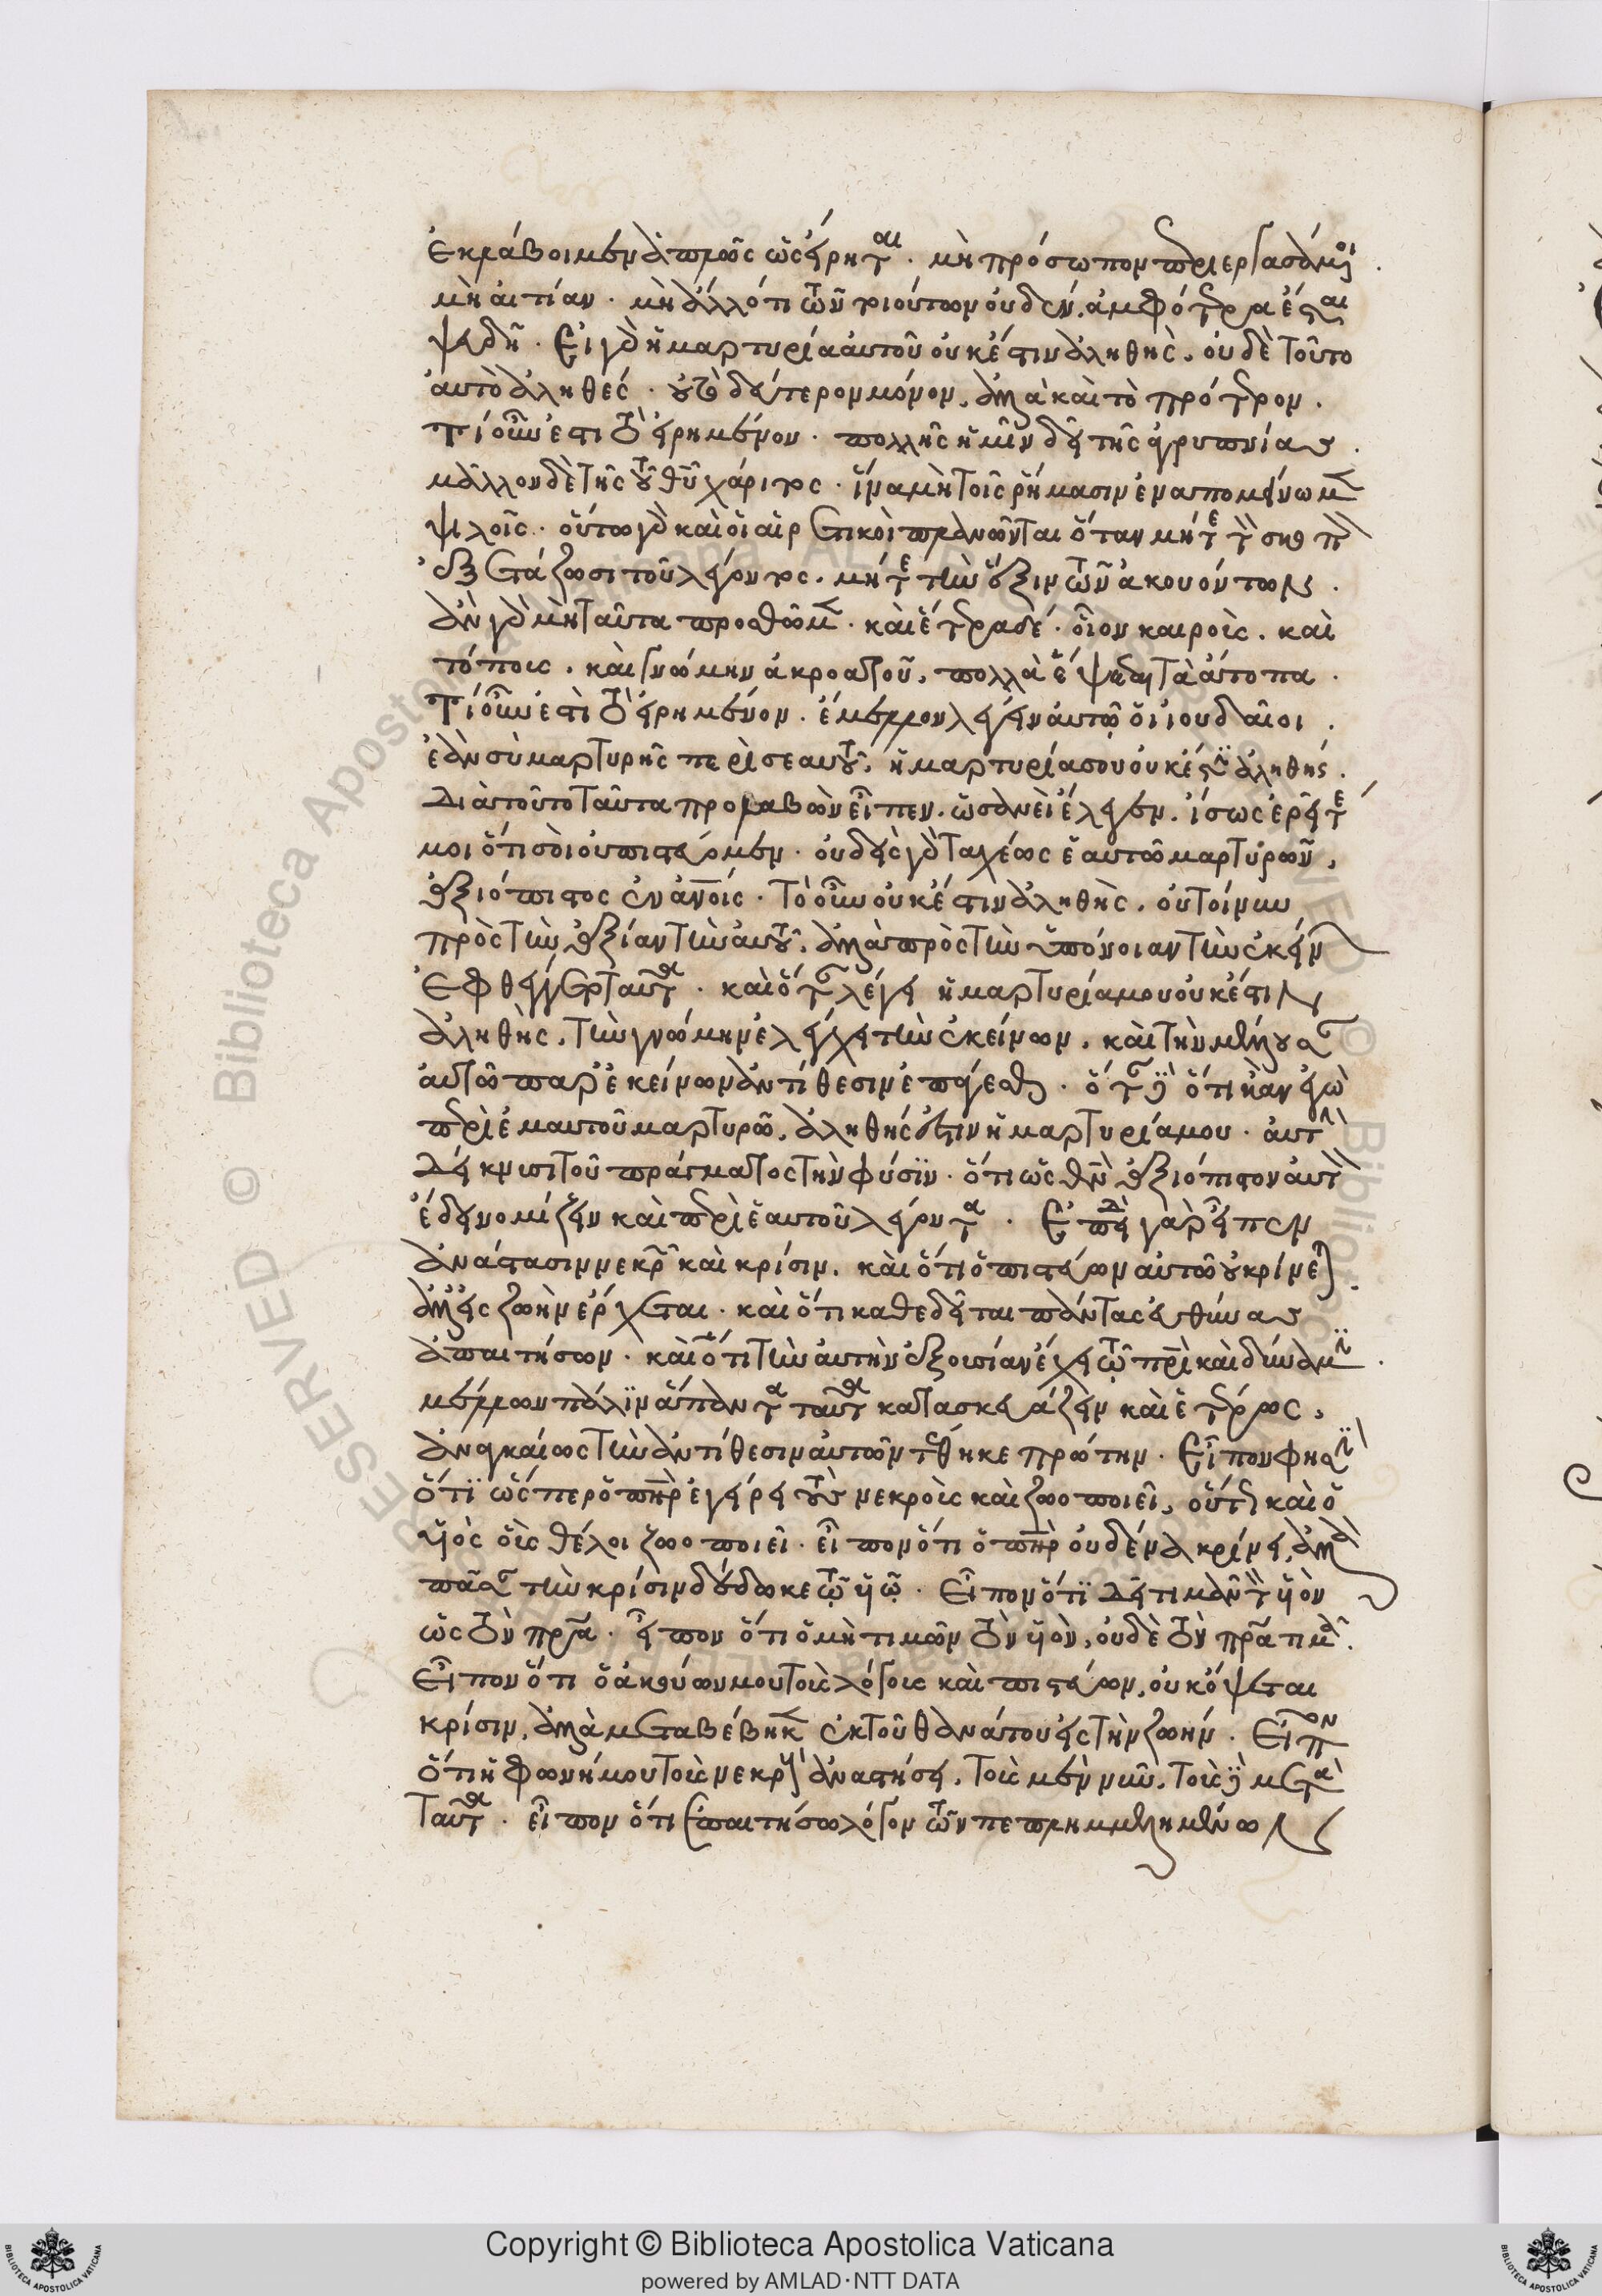 ἐκλάβοιμεν ἁπλῶς ὡς εἴρηται · μὴ πρόσωπον περιεργασάμενοι .
μὴ αἰτίαν · μὴ ἄλλό τι τῶν τοιούτων οὐδέν, ἀμφότερα ἔσται
ψευδῆ · Εἰ γὰρ ἡ μαρτυρία αὐτοῦ οὐκ ἔστιν ἀληθὴς, οὐδὲ τοῦτο
αὐτὸ ἀληθές · οὐ τὸ δεύτερον μόνον, ἀλλὰ καὶ τὸ πρότερον .
Τί οὖν ἐστι τὸ εἰρημένον · πολλῆς ἡμῖν δεῖ τῆς ἀγρυπνίας .
μᾶλλον δὲ τῆς τοῦ θυ χάριτος · ἵνα μὴ τοῖς ῥήμασιν ἐναπομείνωμεν
ψιλοῖς · οὕτω γὰρ καὶ οἱ αἱρετικοὶ πλανῶνται ὅταν μήτε τὸν σκοπὸν
ἐξετάζωσι τοῦ λέγοντος · μήτε τὴν ἕξιν τῶν ἀκουόντων .
ἂν γὰρ μὴ ταῦτα προσθῶμεν · καὶ ἕτερα δέ · οἷον καιροὺς · καὶ
τόπους · καὶ γνώμην ἀκροατοῦ, πολλὰ ἕψεται τὰ ἄτοπα .
Τί οὖν ἐστὶ τὸ εἰρημένον · ἔμελλον λέγειν αὐτῷ οἱ ἰουδαῖοι .
ἐὰν σὺ μαρτυρῆς περὶ σεαυτοῦ, ἡ μαρτυρία σου οὐκ ἔστιν ἀληθής .
Διὰ τοῦτο ταῦτα προλαβὼν εἶπεν · ὡσανεὶ ἔλεγεν · ἴσως ἐρεῖτέ
μοι ὅτι σοὶ οὐ πιστεύομεν · οὐδεὶς γὰρ ταχέως ἑαυτῷ μαρτυρῶν,
ἀξιόπιστος ἐν ἀνοις · Τὸ οὖν οὐκ ἔστιν ἀληθὴς, οὐ τοίνυν
πρὸς τὴν ἀξίαν τὴν αὐτοῦ, ἀλλὰ πρὸς τὴν ὑπόνοιαν τὴν ἐκείνων
ἐφθέγγετο ταῦτα · καὶ ὅταν λέγη ἡ μαρτυρία μου οὐκ ἔστιν
ἀληθὴς, τὴν γνώμην ἐλέγχει τὴν ἐκείνων, καὶ τὴν μέλλουσαν
αὐτῷ παρ' ἐκείνων ἀντίθεσιν ἐπάγεσθαι · ὅταν δὲ ὅτι κἂν ἐγὼ
περὶ ἐμαυτοῦ μαρτυρῶ, ἀληθής ἐστιν ἡ μαρτυρία μου · αὐτὴν
δείκνυσι τοῦ πράγματος τὴν φύσιν · ὅτι ὡς θν ἀξιόπιστον αὐτὸν
ἔδει νομίζειν καὶ περὶ ἑαυτοῦ λέγοντα · Ἐπειδὴ γὰρ εἶπεν
ἀνάστασιν νεκρῶν καὶ κρίσιν, καὶ ὅτι ὁ πιστεύων αὐτῷ οὐ κρίνεται .
ἀλλ' εἰς ζωὴν ἔρχεται · καὶ ὅτι καθεδεῖται πάντας εὐθύνας
ἀπαιτήσων · καὶ ὅτι τὴν αὐτὴν ἐξουσίαν ἔχει τῷ πρι καὶ δύναμιν .
μέλλων πάλιν ἅπαντα ταῦτα κατασκευάζειν καὶ ἑτέρως,
ἀναγκαίως τὴν ἀντίθεσιν αὐτῶν τέθηκε πρώτην · Εἶπον φησὶν
ὅτι ὥσπερ ὁ πηρ ἐγείρει τοὺς νεκροὺς καὶ ζωοποιεῖ, οὕτω καὶ ὁ
υἱὸς οὓς θέλει ζωοποιεῖ · εἶπον ὅτι ὁ πηρ οὐδένα κρίνει, ἀλλὰ
πᾶσαν τὴν κρίσιν δέδωκε τῷ υἱῷ · Εἶπον ὅτι δεῖ τιμᾶν τὸν υἱὸν
ὡς τὸν πρα · εἶπον ὅτι ὁ μὴ τιμῶν τὸν υἱὸν, οὐδὲ τὸν πρα τιμᾶ .
Εἶπον ὅτι ὁ ἀκούων μου τοὺς λόγους καὶ πιστεύων, οὐκ ὄψεται
κρίσιν, ἀλλὰ μεταβέβηκεν ἐκ τοῦ θανάτου εἰς τὴν ζωήν · Εἶπον
ὅτι ἡ φωνή μου τοὺς νεκροὺς ἀναστήσει, τοὺς μὲν νῦν, τοὺς δὲ μετὰ
ταῦτα · εἶπον ὅτι ἀπαιτήσω λόγον τῶν πεπλημμελημένων